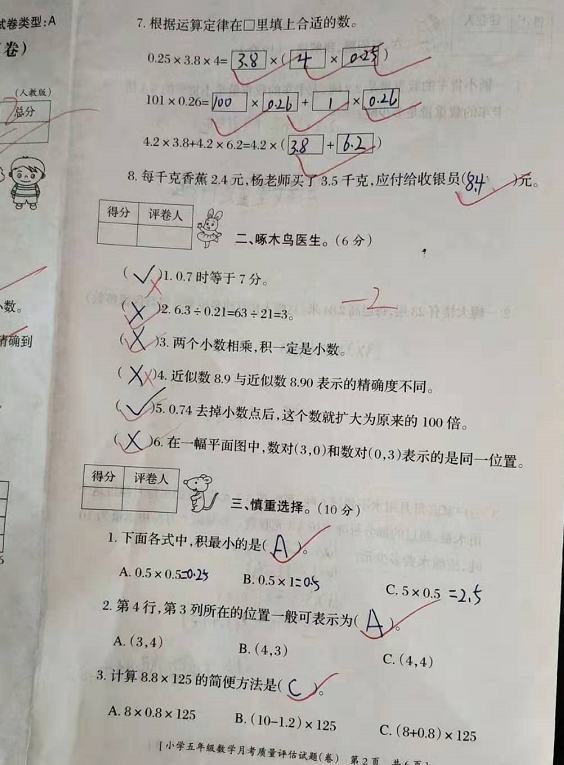 试卷类型:A
卷)
(人教版)
总分
小数。
精确到
7. 根据运算定律在□里填上合适的数。
0.25×3.8×4= 3.8 ×( 4 × 0.25 )
101×0.26= 100 × 0.26 + 1 × 0.26
4.2×3.8+4.2×6.2=4.2×( 3.8 + 6.2 )
8. 每千克香蕉2.4元,杨老师买了3.5千克,应付给收银员(8.4)元。
得分 评卷人
二、啄木鸟医生。(6分)
(✓)1. 0.7时等于7分。
-2
(X)2. 6.3÷0.21=63÷21=3。
(X)3. 两个小数相乘,积一定是小数。
(X)4. 近似数8.9与近似数8.90表示的精确度不同。
(✓)5. 0.74去掉小数点后,这个数就扩大为原来的100倍。
(X)6. 在一幅平面图中,数对(3,0)和数对(0,3)表示的是同一位置。
得分 评卷人
三、慎重选择。(10分)
1. 下面各式中,积最小的是( A )。
A. 0.5×0.5=0.25 B. 0.5×1=0.5 C. 5×0.5 =2.5
2. 第4行,第3列所在的位置一般可表示为( A )。
A. (3,4) B. (4,3) C. (4,4)
3. 计算8.8×125的简便方法是( C )。
A. 8×0.8×125 B. (10-1.2)×125 C. (8+0.8)×125
[小学五年级数学月考质量评估试题(卷) 第2页 共6页]